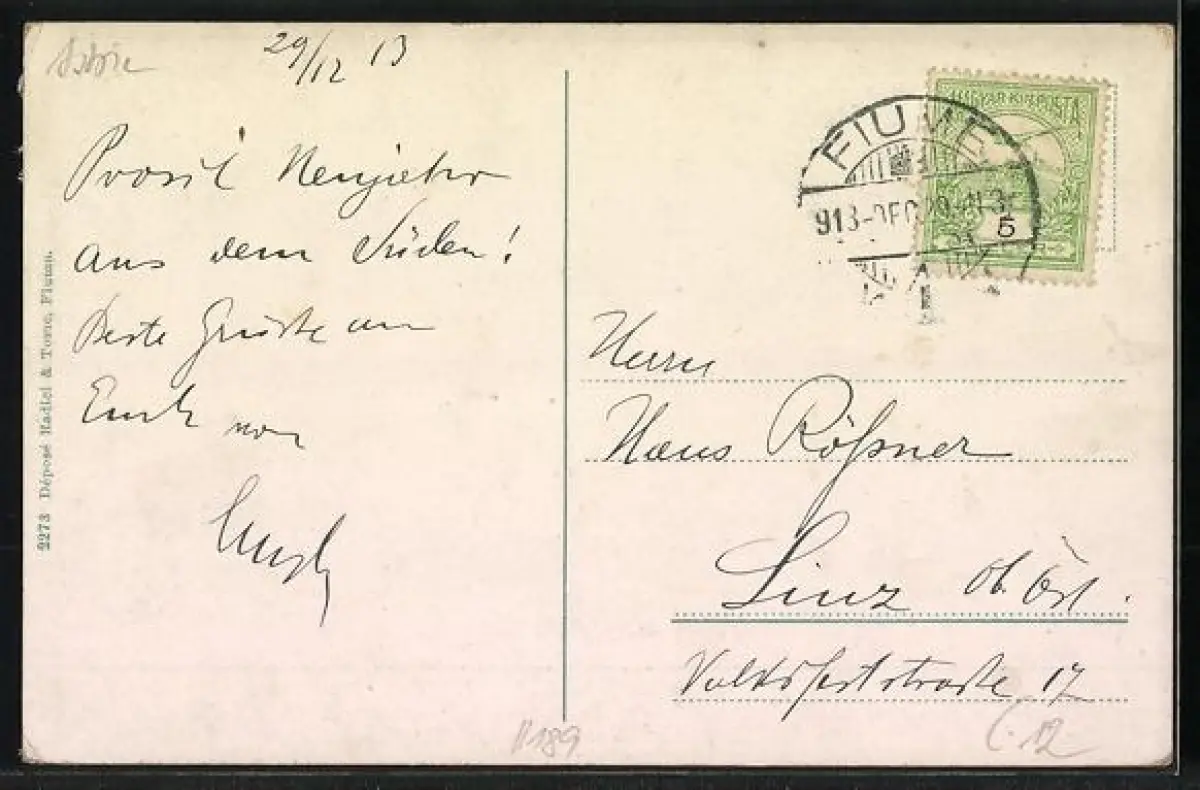 29/12 13
Prosit Neujahr
aus dem Süden!
Beste Grüße an
Euch von
2273 Déposé Radicl & Tosic, Fiume.
MAGYAR KIR. POSTA
FIUME
913-DEC.29-N3
5
Herrn
Hans Rößner
Linz ob. Öst.
Volksfeststraße 17
189
12